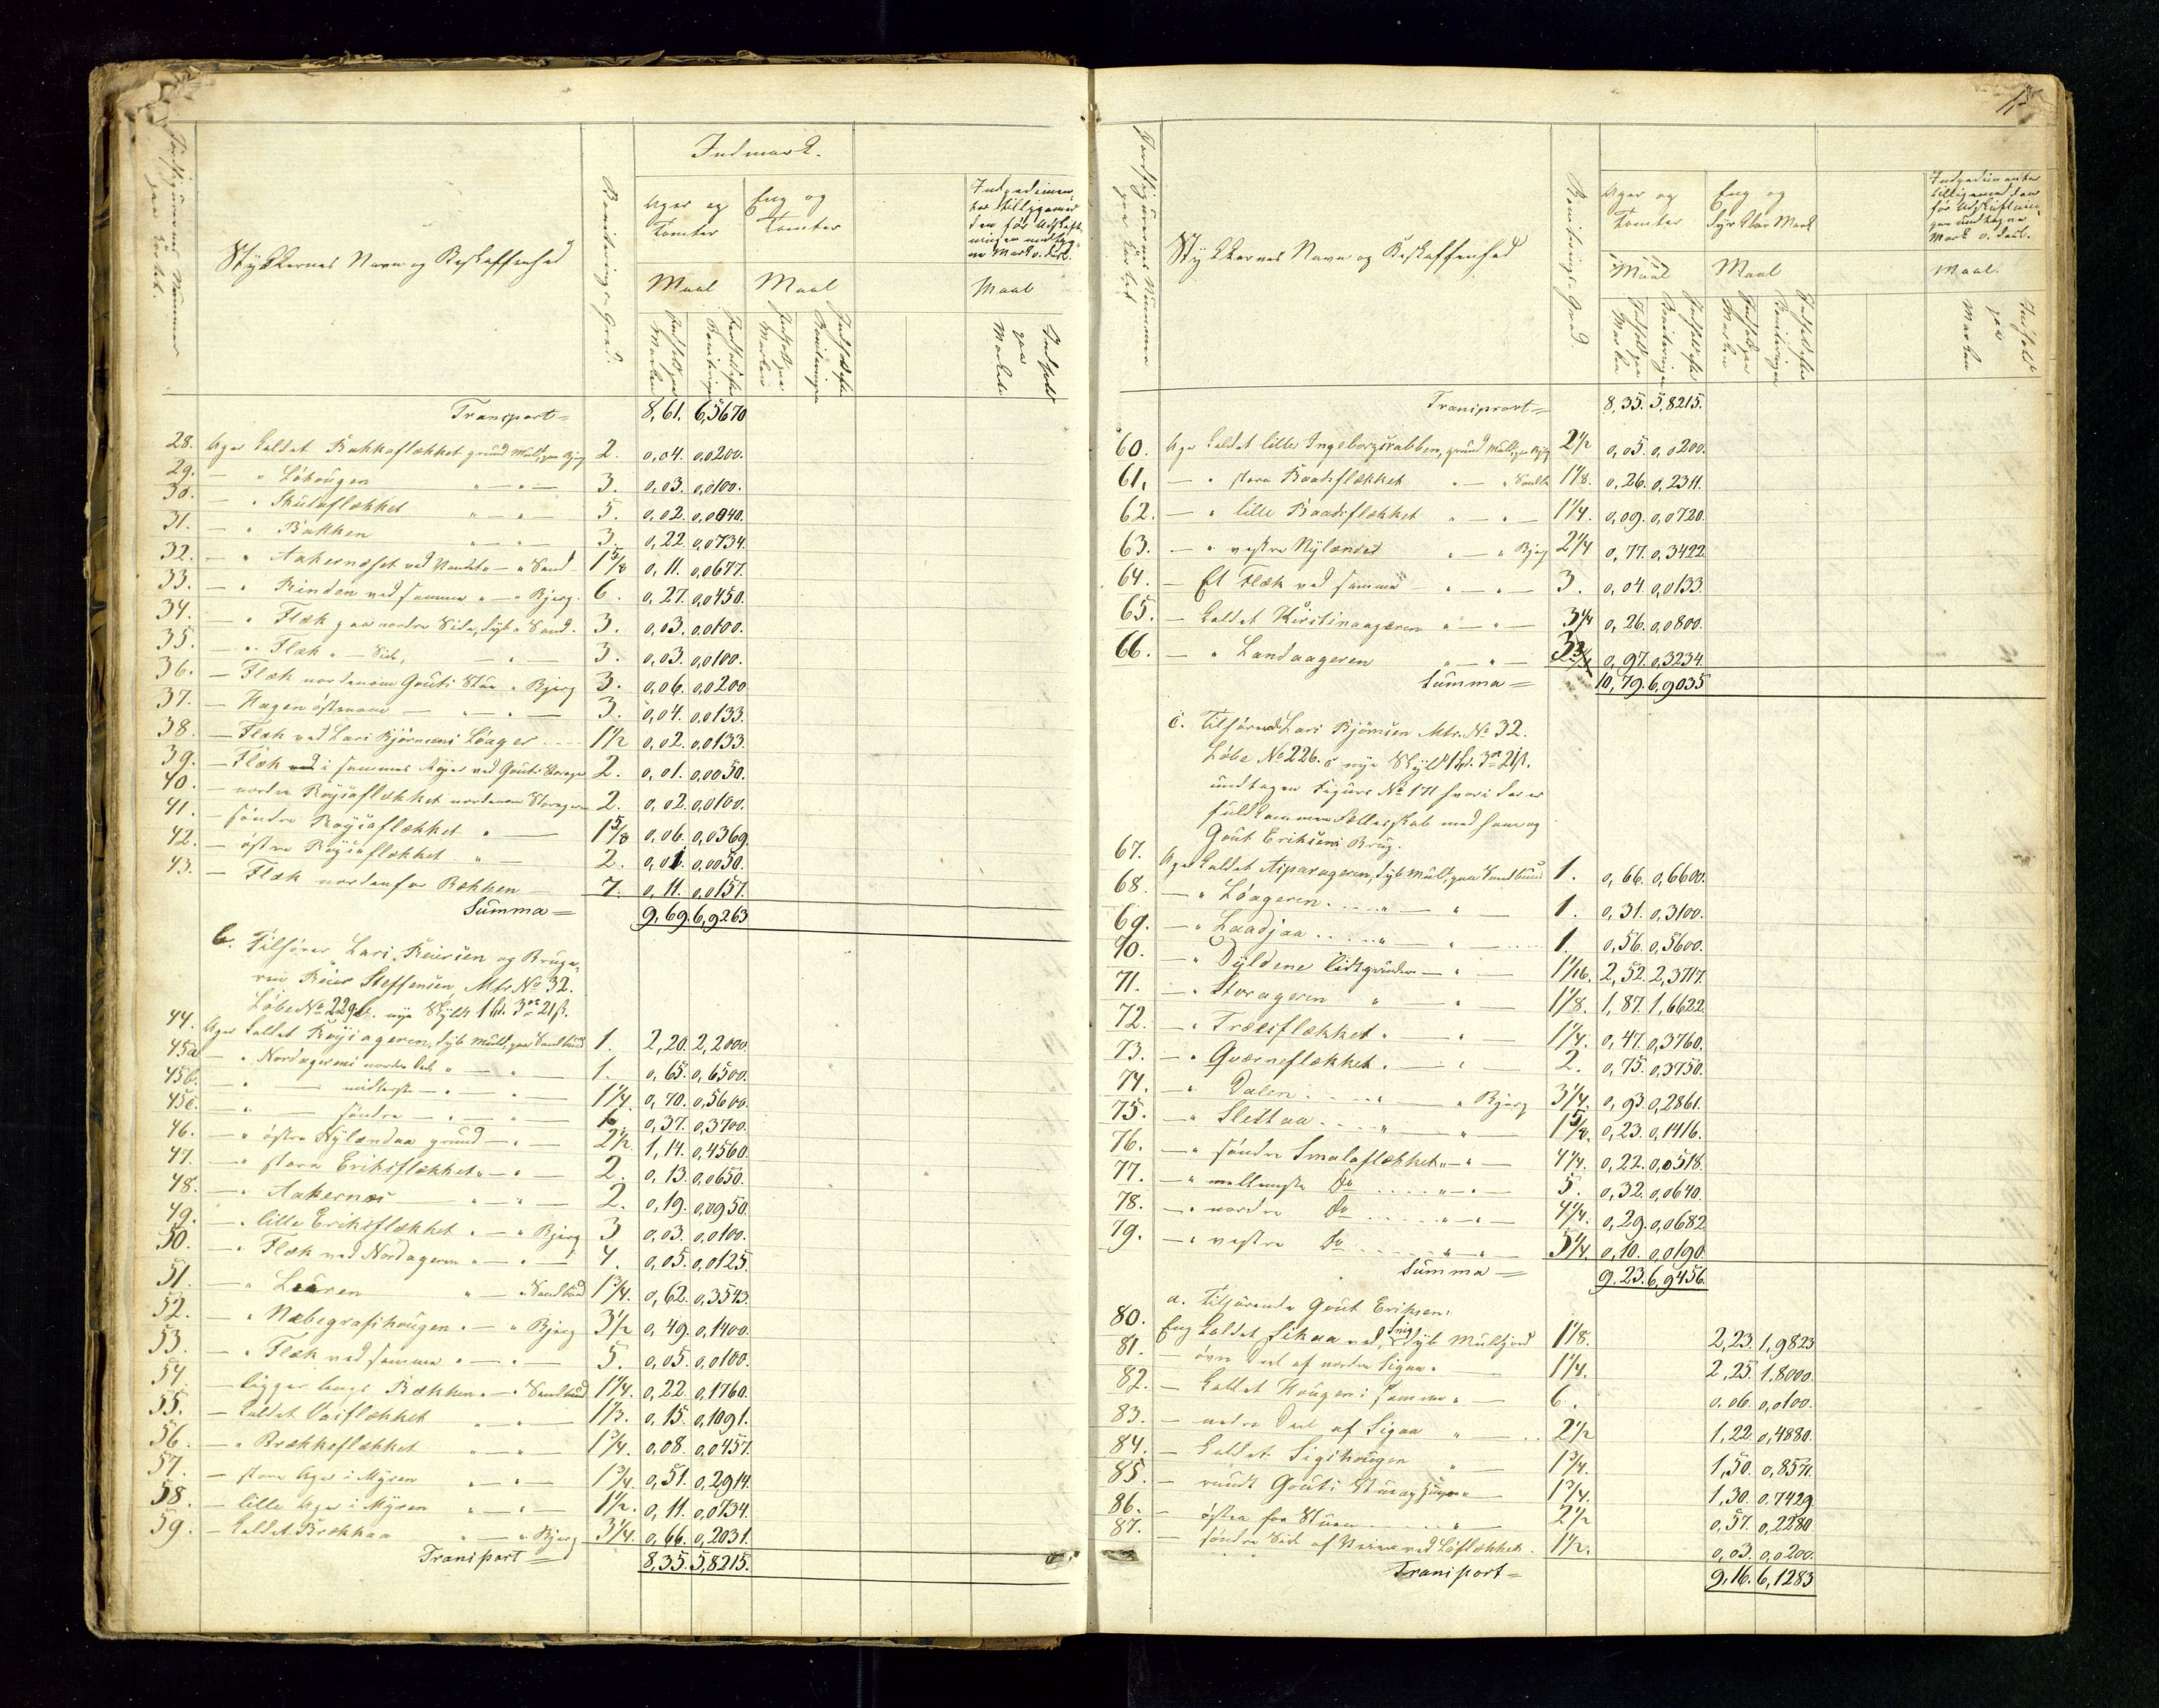 Indmark.
Stykkernes Navn og Beskaffenhed
Bonitering Grad.
Ager og Tomter
Eng og Tomter
Maal
Maal
Maal
Transport = 8,61. 6,5670
28. Ager kaldet Bakkaflækket grund Muld, paa Bjerg 2. 0,04. 0,0200.
29. — " Löhougen " — " — 3. 0,03. 0,0100.
30. — " Skulaflækket " — " — 5. 0,02. 0,0040.
31. — " Bakken " — " — 3. 0,22. 0,0734.
32. — " Aakernæset ved Vandet " — " Sand 1 5/8 0,11. 0,0677.
33. — " Rinden ved samme " — " Bjerg. 6. 0,27. 0,0450.
34. — " Flæk paa nordre Side, dyb " Sand. 3. 0,03. 0,0100.
35. — " Flæk " — Side, — " — 3. 0,03. 0,0100.
36. — Flæk nordenom Gouts Stue " Bjerg 3. 0,06. 0,0200
37. — Hagen östenom — " — " — 3. 0,04. 0,0133.
38. — Flæk ved Lars Bjørnsens Löager 1 1/2 0,02. 0,0133.
39. — Flæk i sammes Ager ved Gouts Storager 2. 0,01. 0,0050.
40. — nordre Röysaflækket nordenom Storageren 2. 0,02. 0,0100.
41. — söndre Röysaflækket " — 1 5/8 0,06. 0,0369.
42. — östre Röysaflækket " — 2. 0,01. 0,0050.
43. — Flæk nordenfor Bækken — 7. 0,11. 0,0157.
Summa = 9,69. 6,9263
b. Tilhører Lars Reiersen og Bruge-
ren Reier Steffensen Mtr. No 32.
Löbe No 229b. nye Skyld 1 d. 3 ort 21 s.
44. Ager kaldet Röysageren, dyb Muld, paa Sandbund 1. 2,20. 2,2000.
45a — " Nordagerens nordre Deel " — " — 1. 0,65. 0,6500.
45b. — " — midterste — " — " — 1 1/4. 0,70. 0,5600.
45c. — " — söndre — " — " — 1. 0,37. 0,3700.
46. — " östre Nylændaa grund — " — 2 1/2. 1,14. 0,4560.
47. — " store Eriksflækket " — " 2. 0,13. 0,0650.
48. — " Aakernæs — " — " 2. 0,19. 0,0950.
49. — " lille Eriksflækket " — " Bjerg 3 0,03. 0,0100.
50. — " Flæk ved Nordageren " — " — 4. 0,05. 0,0125.
51. — " Leiren " — " Sandbund 1 3/4. 0,62. 0,3543.
52. — " Næbegrashougen " — " Bjerg 3 1/2 0,49. 0,1400.
53. — " Flæk ved samme " — " — 5. 0,05. 0,0100.
54. — ligger langs Bækken " — " Sandbund 1 1/4. 0,22. 0,1760.
55. — kaldet Vasflækket " — " — 1 1/3. 0,15. 0,1091.
56. — " Brækkeflækket " — " — 1 3/4. 0,08. 0,0457.
57. — store Ager i Myren " — " — 1 3/4. 0,51. 0,2914.
58. — lille Ager i Myren " — " — 1 1/2. 0,11. 0,0734.
59. — kaldet Brækkaa " — " Bjerg 3 1/4. 0,66. 0,2031.
Transport = 8,35. 5,8215.
Stykkernes Navn og Beskaffenhed
Bonitering Grad.
Ager og Tomter
Eng og dyrkbar Mark
Maal
Maal
Maal.
Transport = 8,35. 5,8215.
60. Ager kaldet lille Ingeborgsrabben, grund Muld, paa Bjerg 2 1/2 0,05. 0,0200.
61. — " store Baadsflækket " — " Sandb. 1 1/8. 0,26. 0,2311.
62. — " lille Baadsflækket " — " — 1 1/4. 0,09. 0,0720.
63. — " vestre Nylændet " — " Bjerg 2 1/4 0,77. 0,3422.
64. — Et Flæk ved samme " — " — 3. 0,04. 0,0133.
65. — kaldet Kirstinaageren " — " — 3 1/4 0,26. 0,0800.
66. — " Landaageren " — " — 3 0,97. 0,3234.
Summa = 10,79. 6,9035
c. Tilhörende Lars Bjørnsen Mtr. No 32.
Löbe No 226. c nye Skyld 1 d. 3 ort 21 s.
undtagen Figurs No 171 hvori der er
fuldkommen Fællesskab med ham og
Gout Eriksens Brug.
67. Ager kaldet Aiparageren, dyb Muld, paa Sandbund 1. 0,66. 0,6600.
68. — " Löageren. " " — 1. 0,31. 0,3100.
69. — " Laadjaa " — " — 1. 0,56. 0,5600.
70. — " Dyldene lidt grundere — " — 1 1/16. 2,52. 2,3717.
71. — " Storageren " — " — 1 1/8. 1,87. 1,6622.
72. — " Træesflækket " — " — 1 1/4. 0,47. 0,3760.
73. — " Qværneflækket " — " — 2. 0,75. 0,3750.
74. — " Dalen " " Bjerg 3 1/4. 0,93. 0,2861.
75. — " Slettaa " — " — 1 5/8. 0,23. 0,1416.
76. — " söndre Smalaflækket " — " — 4 1/4. 0,22. 0,0518.
77. — " mellemste Do " — " — 5. 0,32. 0,0640.
78. — " nordre Do " — " — 4 1/4. 0,29. 0,0682
79. — " vestre Do " — " — 5 1/4. 0,10. 0,0190.
Summa = 9.23. 6,9456.
a. Tilhörende Gout Eriksen:
80. Eng kaldet Sikaa ved, dyb Muldjord 1 1/8. 2,23. 1,9823
81. övre Deel af nordre Sigaa " 1 1/4. 2,25. 1.8000.
82. — kaldet Hougen i samme " — 6. 0.06. 0,0100.
83. — nedre Deel af Sigaa " — 2 1/2 1,22. 0,4880.
84. — kaldet Sigshougen " — 1 3/4. 1,50. 0,8571.
85. — rundt Gouts Stue og — 1 3/4. 1,30. 0,7429.
86. — östen for Stuen " — 2 1/2 0,57. 0,2280.
87. — söndre Side af Veien ved Löflækket. 1 1/2. 0,03. 0,0200.
Transport = 9,16. 6,1283